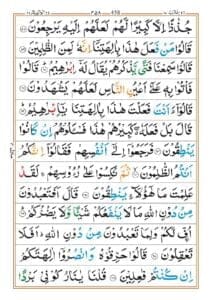 جُذٰذًا اِلَّا كَبِيْرًا لَّهُمْ لَعَلَّهُمْ اِلَيْهِ يَرْجِعُوْنَ
قَالُوْا مَنْ فَعَلَ هٰذَا بِاٰلِهَتِنَاۤ اِنَّهٗ لَمِنَ الظّٰلِمِيْنَ
قَالُوْا سَمِعْنَا فَتًى يَّذْكُرُهُمْ يُقَالُ لَهٗۤ اِبْرٰهِيْمُ قَالُوْا
فَاْتُوْا بِهٖ عَلٰۤى اَعْيُنِ النَّاسِ لَعَلَّهُمْ يَشْهَدُوْنَ قَالُوْۤا
ءَاَنْتَ فَعَلْتَ هٰذَا بِاٰلِهَتِنَا يٰۤاِبْرٰهِيْمُ
قَالَ بَلْ فَعَلَهٗ كَبِيْرُهُمْ هٰذَا فَسْـَٔلُوْهُمْ اِنْ كَانُوْا
يَنْطِقُوْنَ فَرَجَعُوْۤا اِلٰۤى اَنْفُسِهِمْ فَقَالُوْۤا اِنَّكُمْ
اَنْتُمُ الظّٰلِمُوْنَ ثُمَّ نُكِسُوْا عَلٰى رُءُوْسِهِمْ لَقَدْ
عَلِمْتَ مَا هٰۤؤُلَآءِ يَنْطِقُوْنَ قَالَ اَفَتَعْبُدُوْنَ
مِنْ دُوْنِ اللّٰهِ مَا لَا يَنْفَعُكُمْ شَيْـًٔا وَّلَا يَضُرُّكُمْ
اُفٍّ لَّكُمْ وَلِمَا تَعْبُدُوْنَ مِنْ دُوْنِ اللّٰهِ اَفَلَا
تَعْقِلُوْنَ قَالُوْا حَرِّقُوْهُ وَانْصُرُوْۤا اٰلِهَتَكُمْ
اِنْ كُنْتُمْ فٰعِلِيْنَ قُلْنَا يٰنَارُ كُوْنِيْ بَرْدًا